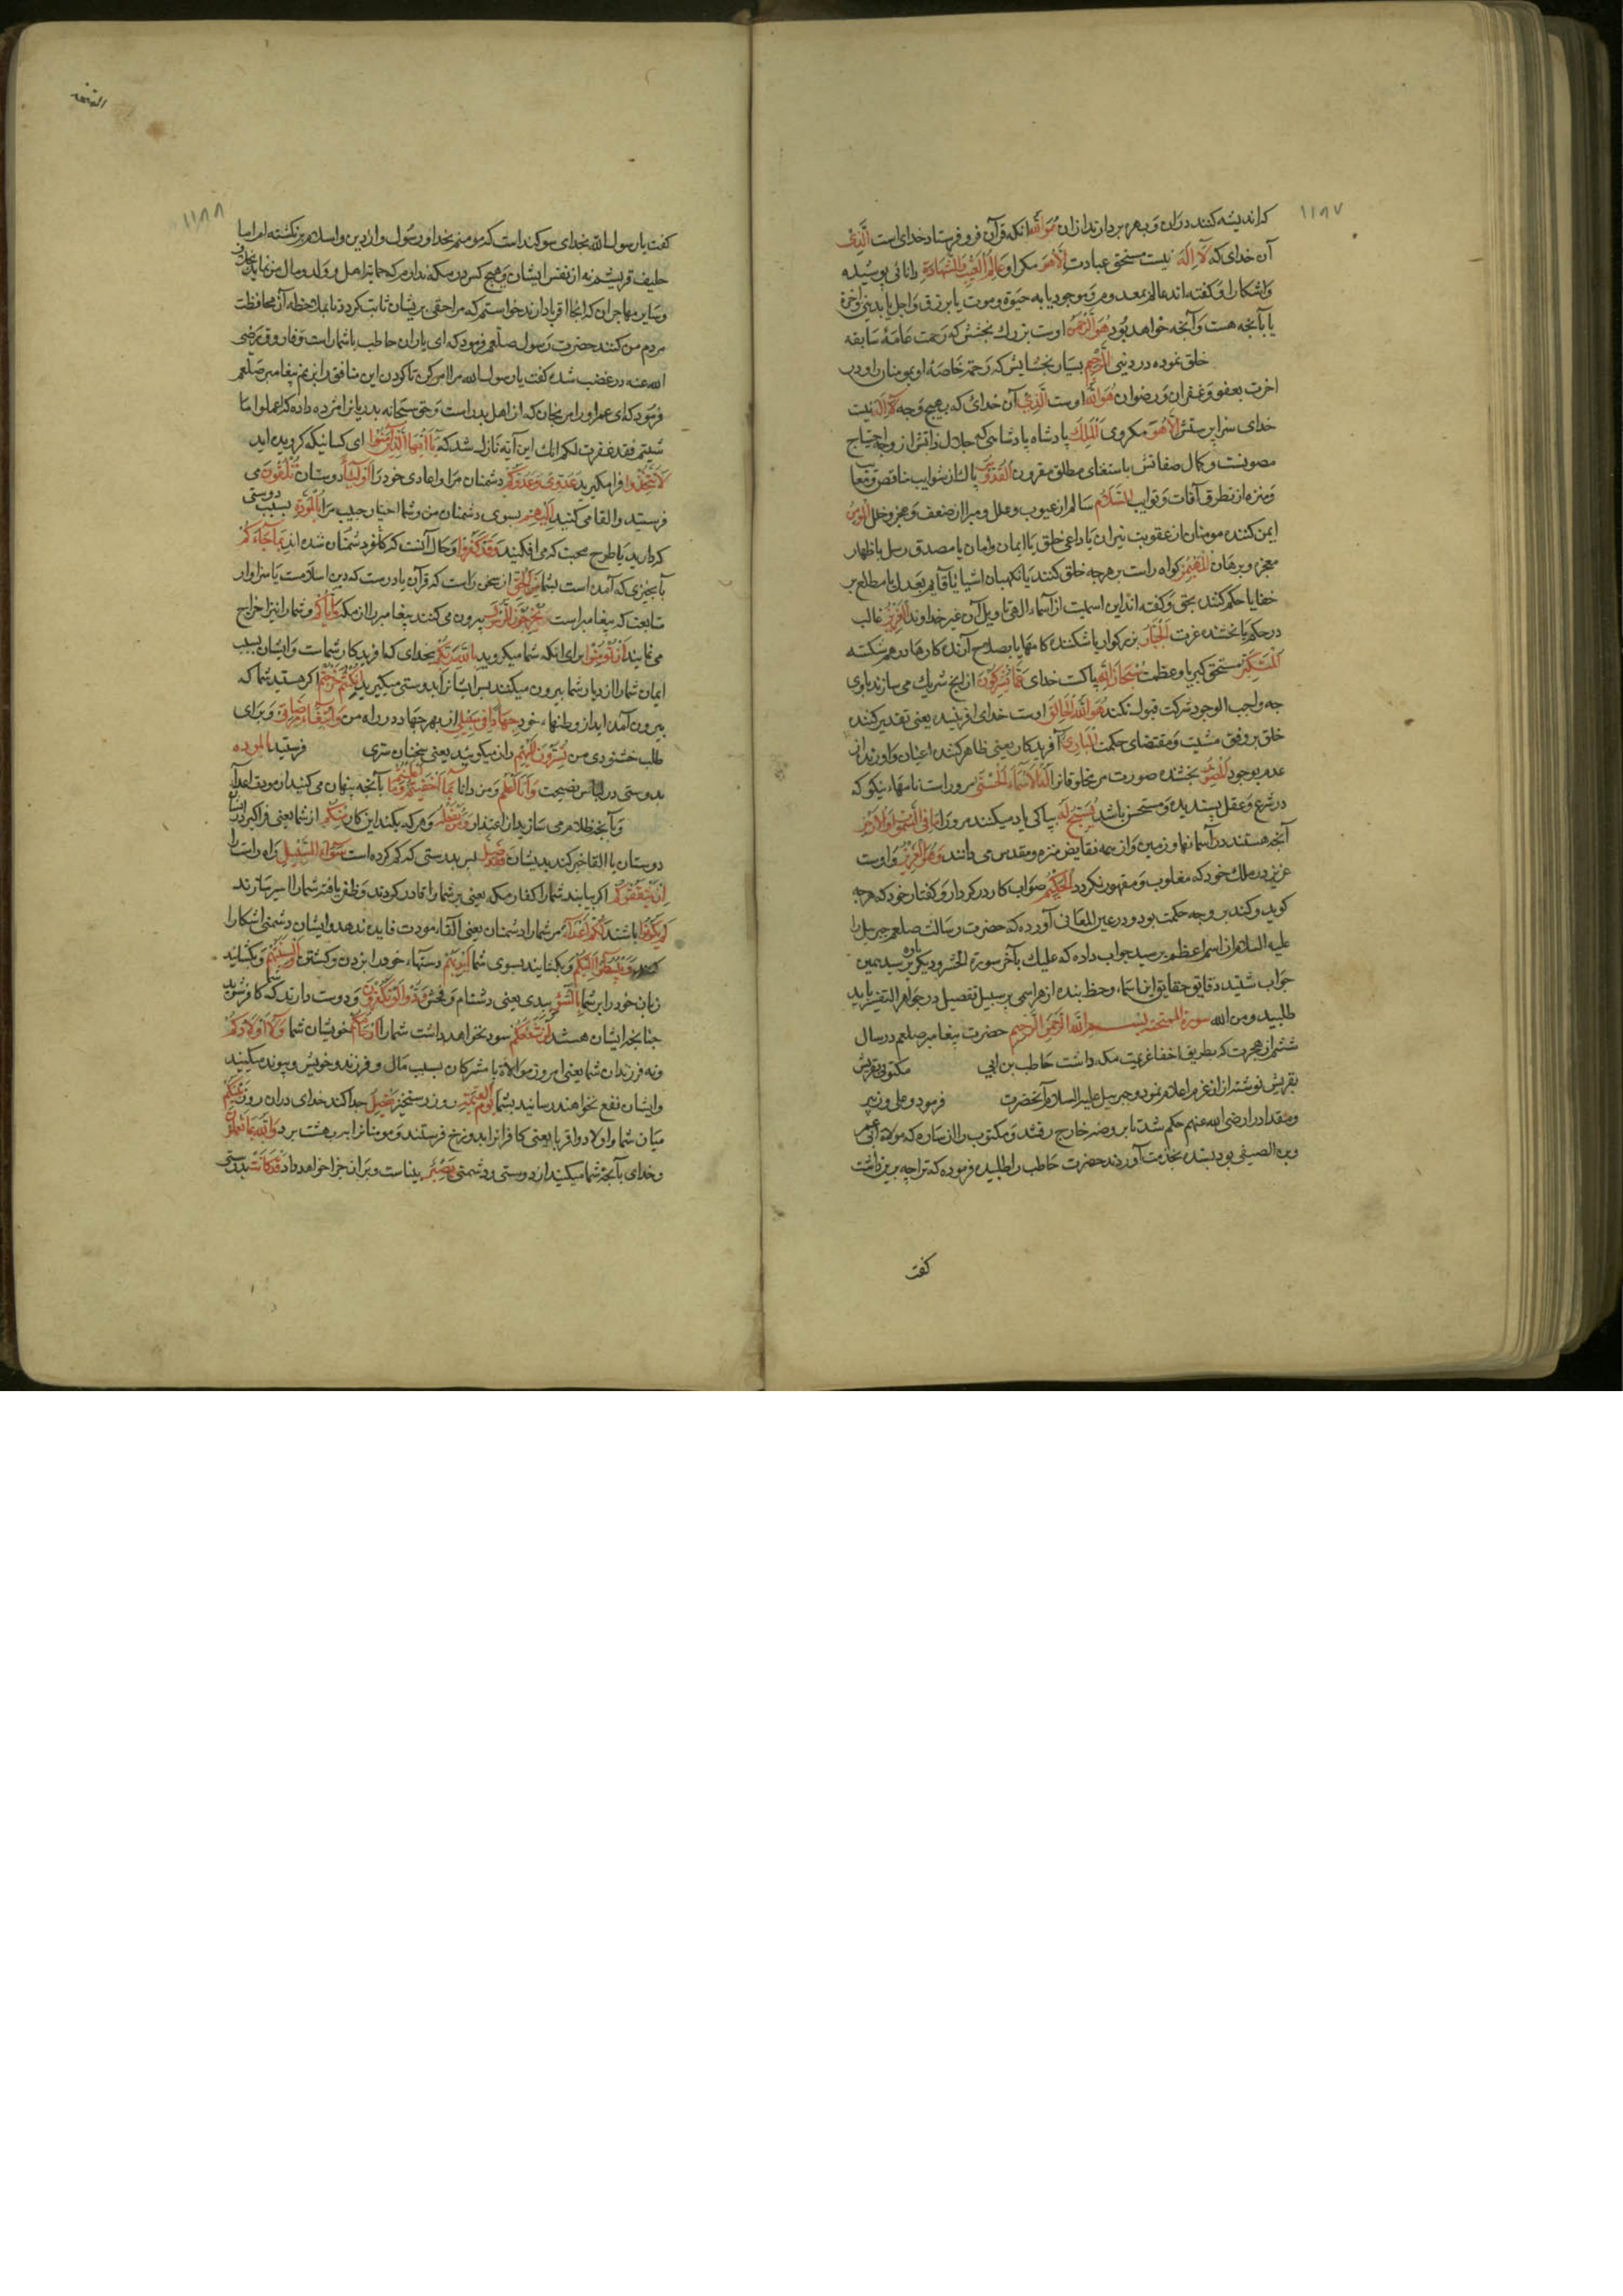 ١١٨٧
که اندیشه کنند دران و بهره بردارند ازان هُوَ اللّه انکه قرآن فرو فرستاد خدای است الَّذِی
آن خدای که لَا اِلٰهَ نیست مستحق عبادت اِلَّا هُوَ مکر او عَالِمُ الْغَیْبِ وَالشَّهَادَةِ دانائی پوشیده
واشکارا و کفته اند عالم بمعدوم و موجود یا به حیوة و موت یا برزق و اجل یا بدینی و اخرة
یا بآنچه هست و آنچه خواهد بود هُوَ الرَّحْمٰنُ اوست بزرك بخشش که رحمت عامهٔ سابقه
خلق نموده در دنیی الرَّحِیم بسیار بخشایش که رحمت خاصهٔ او بمومنان را در
اخرت بعفو و غفران و رضوان هُوَ اللّهُ اوست الَّذِی آن خدائی که بهیچ وجه لَا اِلٰهَ نیست
خدای سزای پرستش اِلَّا هُوَ مکر وی اَلْمَلِكُ پادشاه پادشاهی که جلال ذاتش از وجه احتیاج
مصونست و کمال صفاتش باستغنای مطلق مقرون الْقُدُّوسُ پاك از شوایب مناقص و معایب
و منزه از تطرق آفات و نوایب السَّلَامُ سالم از عیوب و علل و مبرا از ضعف و عجز و خلل الْمُؤْمِنُ
ایمن کننده مومنان از عقوبت نیران یا داعی خلق با ایمان و امان یا مصدق رسل باظهار
معجزه و برهان الْمُهَیْمِنُ کواه راست بر هرچه خلق کنند یا نکهبان اشیا یا قایم بعدل یا مطلع بر
خفایا حکم کننده بحق و کفته اند این اسمیست از اسماء الهی تاویل آن غیر خداوند الْعَزِیزُ غالب
در حکم یا بخشنده عزت الْجَبَّارُ بزرکوار یا شکننده کامها یا بصلاح آرنده کارها درهم شکسته
الْمُتَکَبِّرُ مستحق کبریا و عظمت سُبْحَانَ اللّهِ پاکست خدای عَمَّا یُشْرِکُونَ از انچ شریك می سازند باوی
چه واجب الوجود شرکت قبول نکند هُوَ اللّهُ الْخَالِقُ اوست خدای افریننده یعنی تقدیر کننده
خلق بر وفق مشیت و مقتضای حکمت الْبَارِئُ آفریدکار یعنی ظاهر کننده اعیان و اورنده از
عدم بوجود الْمُصَوِّرُ بخشنده صورت مر مخلوقانرا لَهُ الْاَسْمَاءُ الْحُسْنٰی مر وراست نامهاء نیکو که
در شرع و عقل پسندیده و مستحسن باشد یُسَبِّحُ لَهُ بپاکی یاد میکنند مرورا مَا فِی السَّمٰوَاتِ وَالْاَرْضِ
آنچه هستند در آسمانها و زمین و از همه نقایض منزه و مقدس می دانند وَهُوَ الْعَزِیزُ و اوست
عزیز در ملك خود که مغلوب و مقهور نکردد الْحَکِیمُ صواب کار در کردار و کفتار خود که هرچه
کوید و کند بر وجه حکمت بود و در عین المعانی آورده که حضرت رسالت صلعم جبریل را
علیه السلام از اسم اعظم پرسید جواب داده که علیك بآخر سورة الحشر و دیکر باره پرسید همین
جواب شنید دقایق حقایق این اسماء و حظ بنده از هر اسمی بر سبیل تفصیل در جواهر التفسیر باید
طلبید ومن الله سورة الممتحنة بسم الله الرحمن الرحیم حضرت پیغامبر صلعم در سال
ششم از هجرت که بطریق اخفا عزیمت مکه داشت حاطب بن ابی مکتوبی بقریش
بقریش نوشته از ان عزم اعلام نمود و جبرییل علیه السلام آنحضرت فرمود و علی و زبیر
و مقداد را رضی الله عنهم حکم شد تا بروضه خارج رفتند و مکتوب را از ساره که مولاة ابی عمر
و بن الصیفی بود بستده بخدمت آوردند حضرت حاطب را طلبیده فرموده که ترا چه برین داشت
کفت
الممتحنه
١١٨٨
کفت یا رسول الله بخدای سوکند است که مومنم بخدا و رسول و از دین و اسلام بر نکشته ام اما
حلیف قریشم نه از نفس ایشان و هیچ کس در مکه ندارم که حمایة اهل و ولد و مال من نماید بخلاف
و سایر مهاجران که انجا اقربا دارند خواستم که مرا حقی بریشان ثابت کردد تا بملاحظه آن محافظت
مردم من کنند حضرت رسول صلعم فرمود که ای یاران حاطب باشما راست و فاروق رضی
الله عنه در غضب شده کفت یا رسول الله مرا امر کن تا کردن این منافق را بزنم پیغامبر صلعم
فرمود که ای عمر او را مرنجان که از اهل بدر است و حق سبحانه بدریانرا مژده داده که اعملوا ما
شیتم فقد غفرت لکم انك این آیة نازل شد که یَا اَیُّهَا الَّذِینَ آمَنُوا ای کسانیکه کرویده اید
لَا تَتَّخِذُوا فرا مکیرید عَدُوِّی وَعَدُوَّکُمْ دشمنان مرا و اعادی خود را اَوْلِیَاءَ دوستان تُلْقُونَ می
فرستید و القا می کنید اِلَیْهِمْ بسوی دشمنان من و شما اخبار حبیب مرا بِالْمَوَدَّةِ بسبب دوستی
که دارید یا طرح محبت که می افکنید وَقَدْ کَفَرُوا و حال آنست که کافر دشمنان شده اند بِمَا جَاءَکُمْ
بآنچیزی که آمده است بشما مِنَ الْحَقِّ از سخن راست که قرآن یا درست که دین اسلامست یا سزاوار
متابعت که پیغامبر است یُخْرِجُونَ الرَّسُولَ بیرون می کنند پیغامبر را از مکه وَاِیَّاکُمْ و شمارا نیز اخراج
می نمایند اَنْ تُؤْمِنُوا برای انکه شما میکروید بِاللّهِ رَبِّکُمْ بخدای که افریدکار شماست و ایشان بسبب
ایمان شمارا از دیار شما بیرون میکنند پس ایشانرا بدوستی میکیرید اِنْ کُنْتُمْ خَرَجْتُمْ اکر هستید شما که
بیرون آمده اید از وطنهاء خود جِهَادًا فِی سَبِیلِی از بهر جهاد در راه من وَابْتِغَاءَ مَرْضَاتِی و برای
طلب خشنودی من تُسِرُّونَ اِلَیْهِمْ راز میکوئید یعنی سخنان سری فرستید بالموده
بدوستی در لباس نصیحت وَاَنَا اَعْلَمُ و من دانا بِمَا اَخْفَیْتُمْ وَمَا اَعْلَنْتُمْ بآنچه پنهان می کنید از مودت اعدآ
و بآنچه ظاهر می سازید از اعتذار وَمَنْ یَفْعَلْهُ و هرکه بکند این کار مِنْکُمْ از شما یعنی فراکیرد ایشانرا
دوستان یا القا خبر کند بدیشان فَقَدْ ضَلَّ پس بدرستی که کم کرده است سَوَاءَ السَّبِیلِ راه راست را
اِنْ یَثْقَفُوکُمْ اکر بیابند شمارا کفار مکه یعنی بر شما قادر کردند و ظفر یافته شمارا اسیر سازند
یَکُونُوا باشند لَکُمْ اَعْدَاءً مر شمارا دشمنان یعنی القاء مودت فایده ندهد و ایشان دشمنی اشکارا
کنند وَیَبْسُطُوا اِلَیْکُمْ و بکشایند بسوی شما اَیْدِیَهُمْ دستهاء خود را بزدن و کشتن وَاَلْسِنَتَهُمْ و بکشایند
زبان خود را بر شما بِالسُّوءِ ببدی یعنی دشنام و فحش وَوَدُّوا لَوْ تَکْفُرُونَ و دوست دارند که شما کافر شوید
چنانچه ایشان هستند لَنْ تَنْفَعَکُمْ سود نخواهد داشت شمارا اَرْحَامُکُمْ خویشان شما وَلَا اَوْلَادُکُمْ
و نه فرزندان شما یعنی امروز موالاة با مشرکان بسبب مال و فرزند و خویش و پیوند میکنید
و ایشان نفع نخواهند رسانید بشما یَوْمَ الْقِیٰمَةِ روز رستخیز یَفْصِلُ جدا کند خدای دران روز بَیْنَکُمْ
میان شما و اولاد و اقربا یعنی کافرانرا بدوزخ فرستند و مومنانرا ببهشت برد وَاللّهُ بِمَا تَعْمَلُونَ
و خدای بآنچه شما میکنید از دوستی و دشمنی بَصِیرٌ بیناست و بران جزا خواهد داد قَدْ کَانَتْ بدرستی